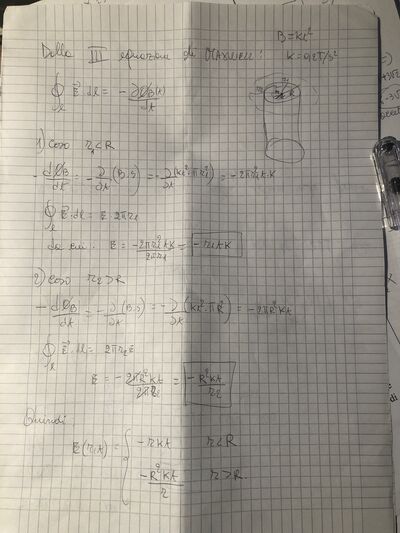 B = kt²
Dalla III equazione di MAXWELL: k = 0,2 T/s²
∮ₗ E⃗ · dl = - dΦ_B(t)/dt
1) Caso r₁ < R
- dΦ_B/dt = - ∂/∂t (B·S) = - ∂/∂t (kt² · πr₁²) = - 2πr₁² t·k
∮ₗ E⃗ · dl = E 2πr₁
da cui: E = - 2πr₁² t k / 2πr₁ = - r₁ t k
2) Caso r₂ > R
- dΦ_B/dt = - ∂/∂t (B·S) = - ∂/∂t (kt² · πR²) = - 2πR² kt
∮ₗ E⃗ · dl = 2πr₂ E
E = - 2πR² kt / 2πr₂ = - R² kt / r₂
Quindi
E(r,t) = { - r k t r < R
- R² kt / r r > R.